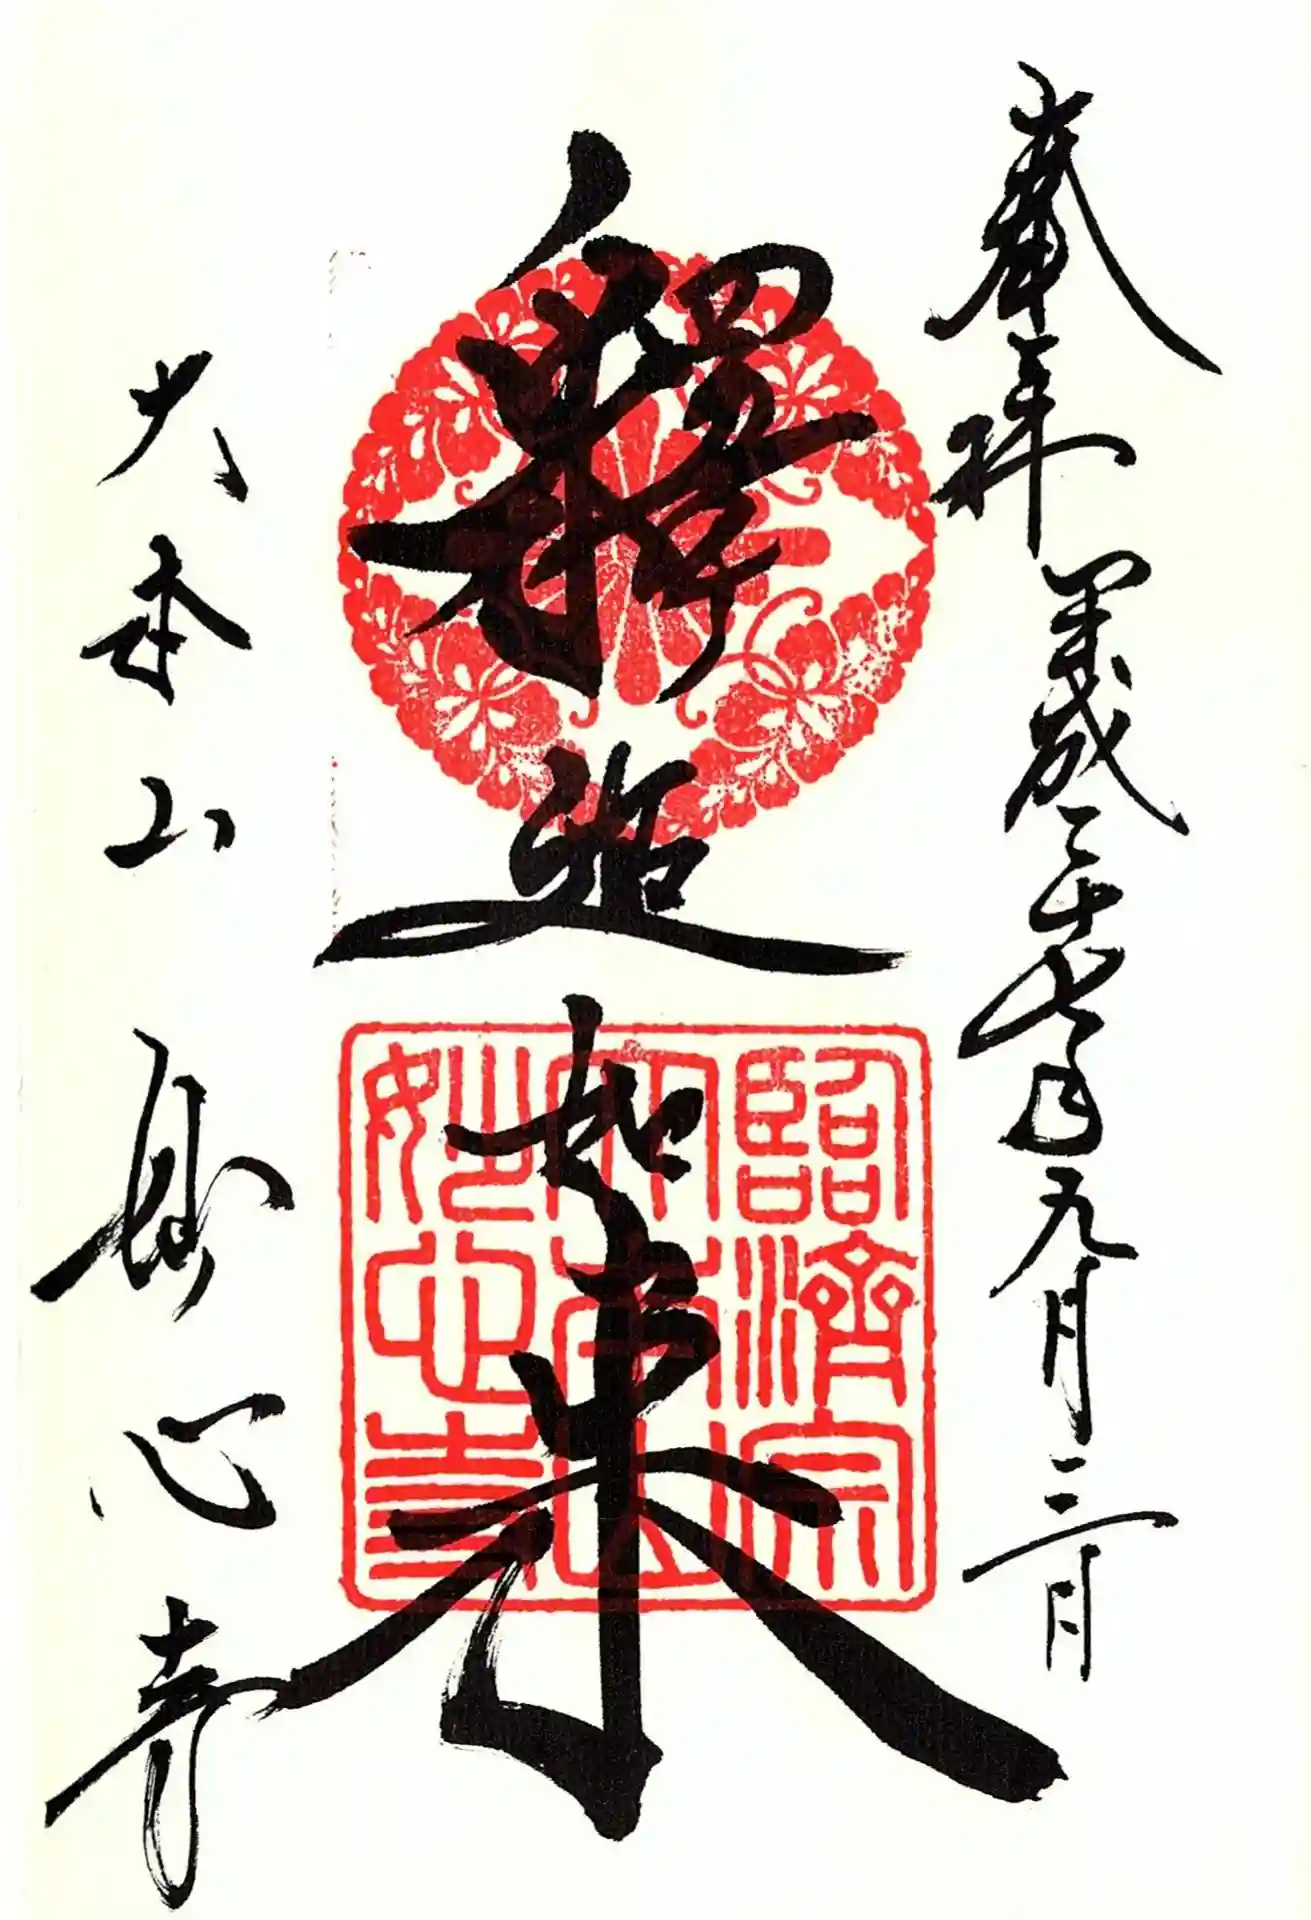 奉拝 平成二十七年九月二日
釋迦如来
臨済宗
大本山
妙心寺
大本山 妙心寺